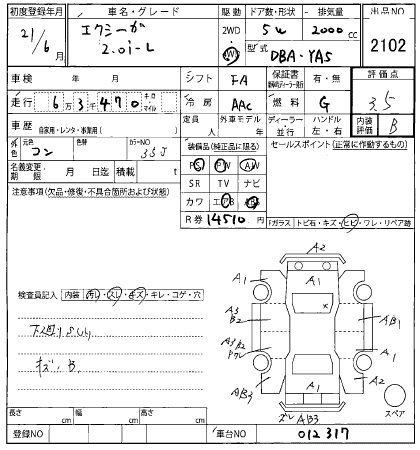 初度登録年月 車名・グレード 駆動 ドア数・形状 排気量 出品NO
21/6月 エクシーガ 2WD 5W 2000 cc 2102
2.0i-L 4WD 型式 DBA-YA5
車検 年 月 シフト FA 保証書 有・無 評価点
走行 6万3千470 キロ マイル 冷房 AAC 燃料 G 3.5
車歴 自家用・レンタ・事業用( ) 定員 人 外車モデル 年 ディーラー 並行 ハンドル 左・右 内装評価 B
外色 元色 コン 色替 カラーNO 33J 装備品(純正品に限る) セールスポイント(正常に作動するもの)
名義変更期限 月 日迄 積載 t PS PW AW
注意事項(欠品・修復・不具合箇所および状態) SR TV ナビ
カワ エアB
R券 14510 円
Fガラス トビ石・キズ・ヒビ・ワレ・リペア跡
A2
A1 A1 A1
×
A3
B2 AB1
検査員記入 内装 汚レ・スレ・キズ・キレ・コゲ・穴
下廻りSUり
A3 B2
Pワレ A1
キズ、B.
AB3 A1 A2
ズレ AB3
スペア
長さ cm 幅 cm 高さ cm
登録NO 車台NO 012317